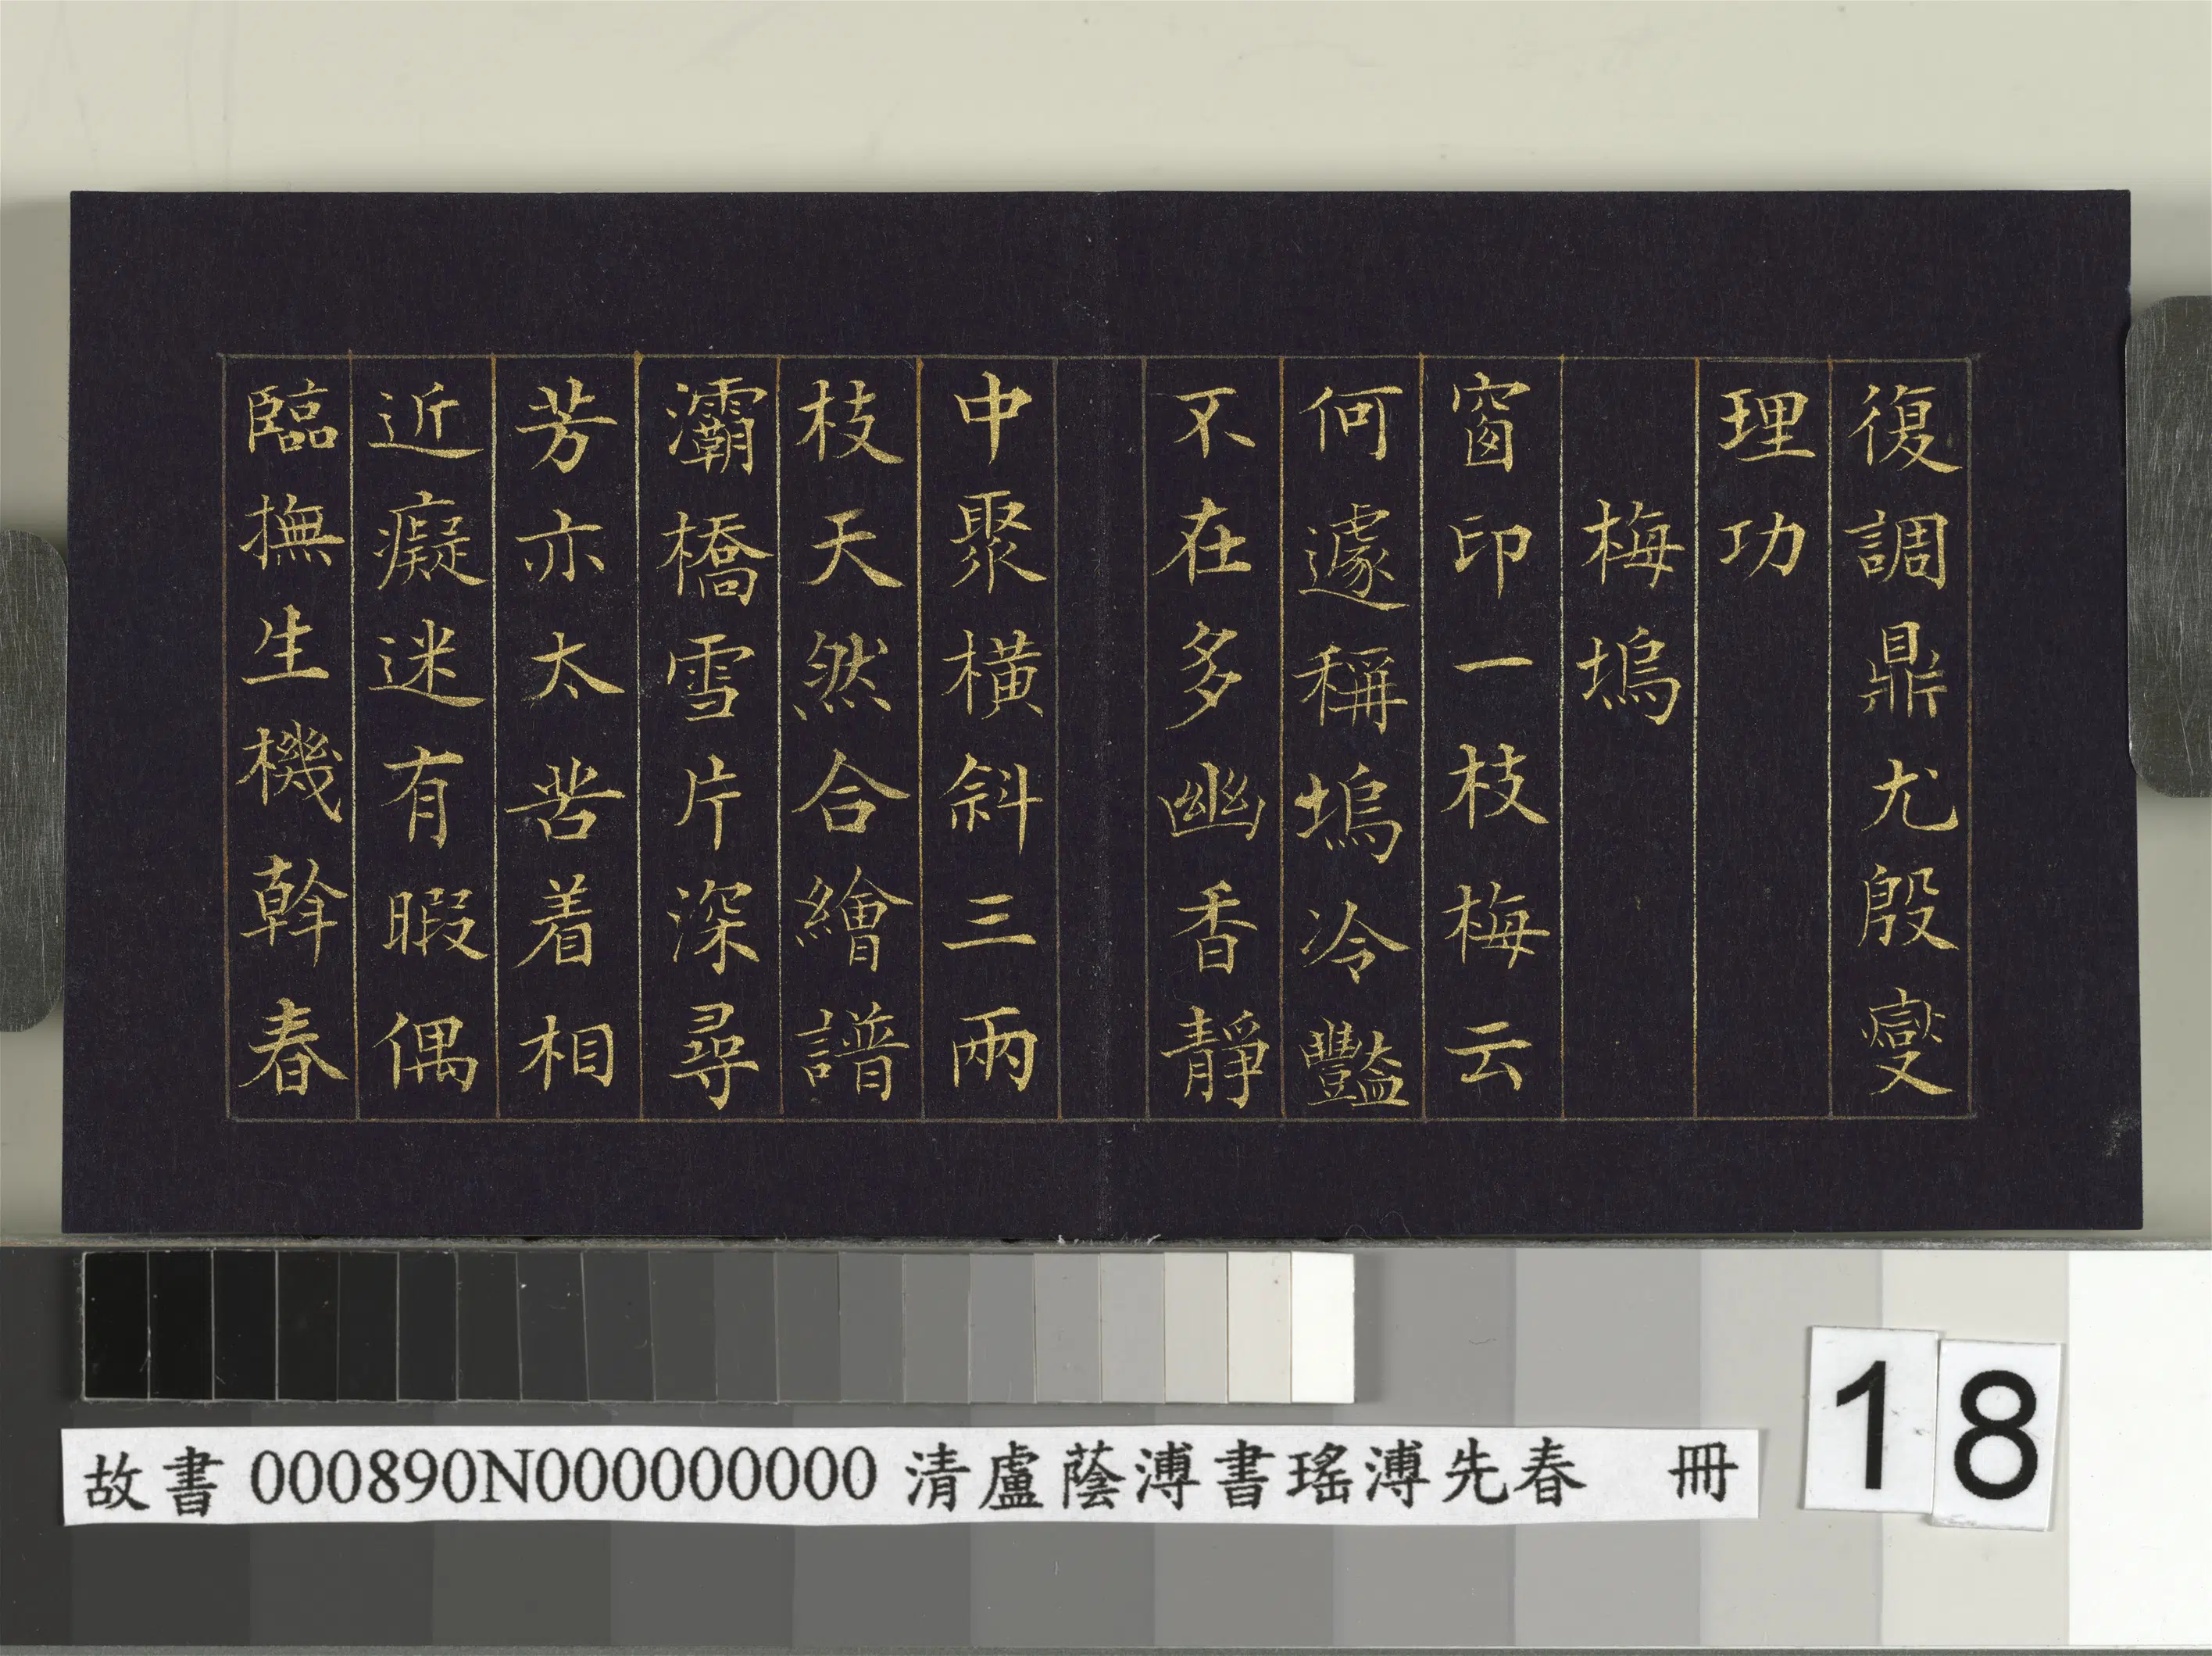 復調鼎尤殷燮
理功
梅塢
窗印一枝梅云
何遽稱塢冷豔
不在多幽香靜
中聚橫斜三兩
枝天然合繪譜
灞橋雪片深尋
芳亦太苦着相
近癡迷有暇偶
臨撫生機斡春
故書 000890N000000000 清盧蔭溥書瑤溥先春 冊
18